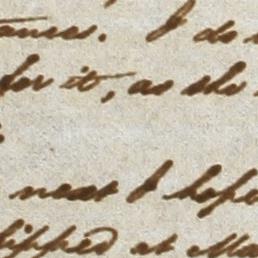 tances. I do
for it, as she
next I hope
shipped at Ma